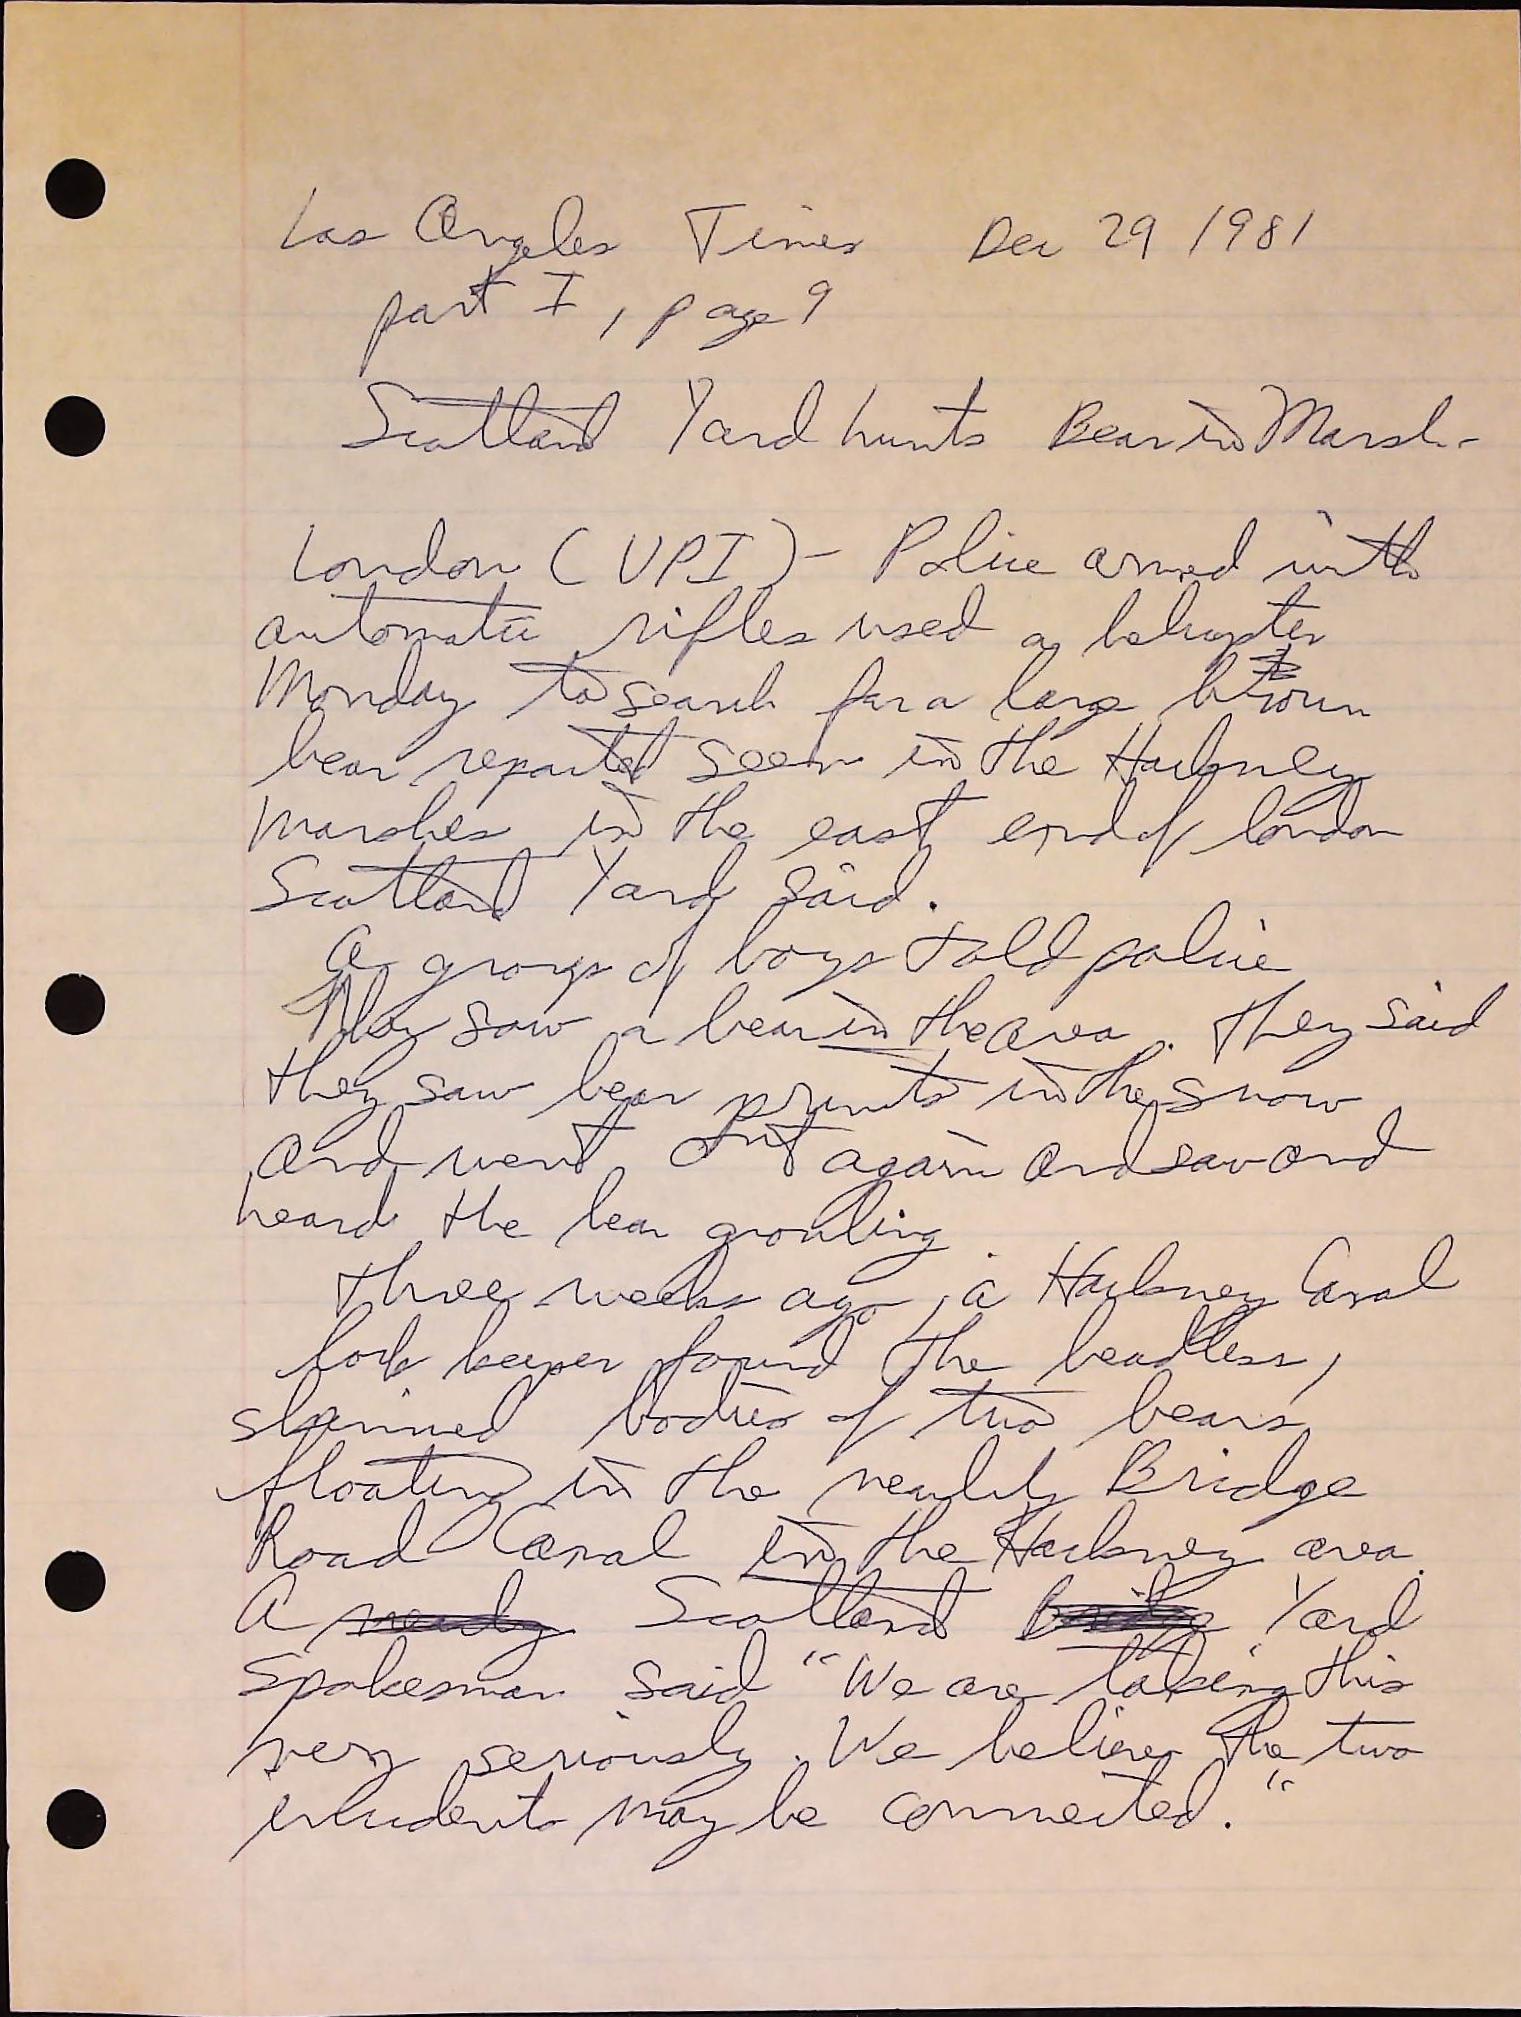 Los Angeles Times Dec 29 1981
part I, page 9
Scotland Yard hunts Bear in Marsh-
London (UPI) - Police armed with
automatic rifles used a helicopter
Monday to search for a large brown
bear reported seen in the Hackney
marshes in the east end of london
Scotland Yard said.
A group of boys told police
they saw a bear in the area. They said
they saw bear prints in the snow
and went out again and saw and
heard the bear growling.
Three weeks ago, a Hackney Canal
lock keeper found the headless,
skinned bodies of two bears
floating in the nearby Bridge
Road Canal in the Hackney area.
A Scotland Yard
Spokesman said "We are taking this
very seriously. We believe the two
incidents may be connected."